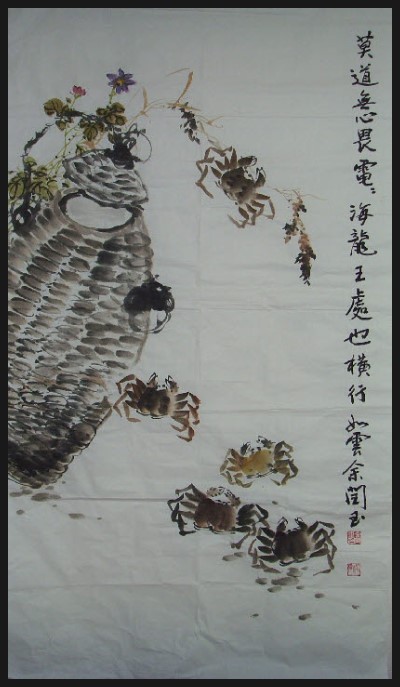 莫道無心畏電〻海龍王處也橫行 如雲余閏玉